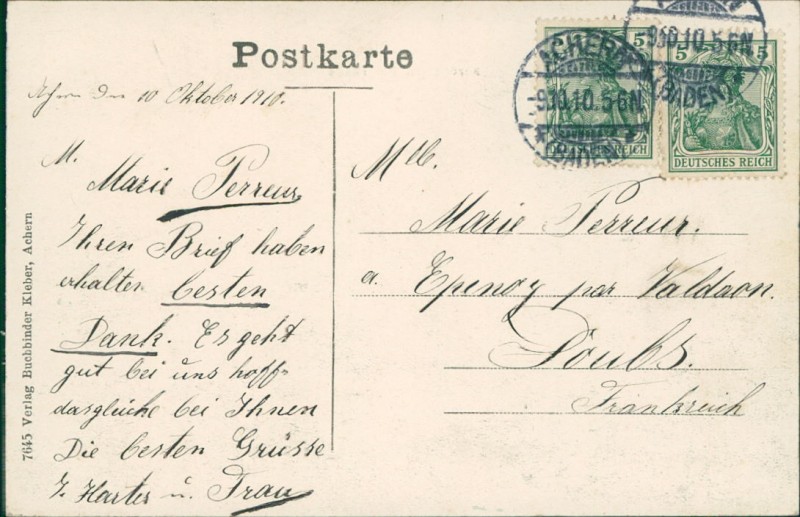 Postkarte
Achern den 10 Oktober 1910.
M.
Marie Perreur
Ihren Brief haben
erhalten besten
Dank. Es geht
gut bei uns hoff-
dasgleiche bei Ihnen
Die besten Grüsse
J. Harter u. Frau
7645 Verlag Buchbinder Kleber, Achern
ACHERN
-9.10.10.5-6N.
* (BADEN) *
-9.10.10.5-6N.
(BADEN)
5
DEUTSCHES REICH
5 5
DEUTSCHES REICH
Mlle.
Marie Perreur.
a. Epenoy par Valdaon.
Doubs.
Frankreich